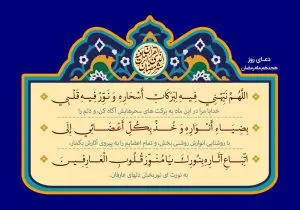 دعای روز
هجدهم ماه رمضان
اللّهُمَّ نَبِّهْنی فیهِ لِبَرَکاتِ أَسْحارِهِ وَ نَوِّرْ فیهِ قَلْبی
خدایا مرا در این ماه به برکت های سحرهایش آگاه کن، و دلم را
بِضِیاءِ أَنْوارِهِ وَ خُذْ بِکُلِّ أَعْضائی إِلی
با روشنایی انوارش روشنی بخش، و تمام اعضایم را به پیروی آثارش بگمار،
اتِّباعِ آثارِهِ بِنُورِکَ یا مُنَوِّرَ قُلُوبِ الْعارِفینَ
به نورت ای نوربخش دلهای عارفان.